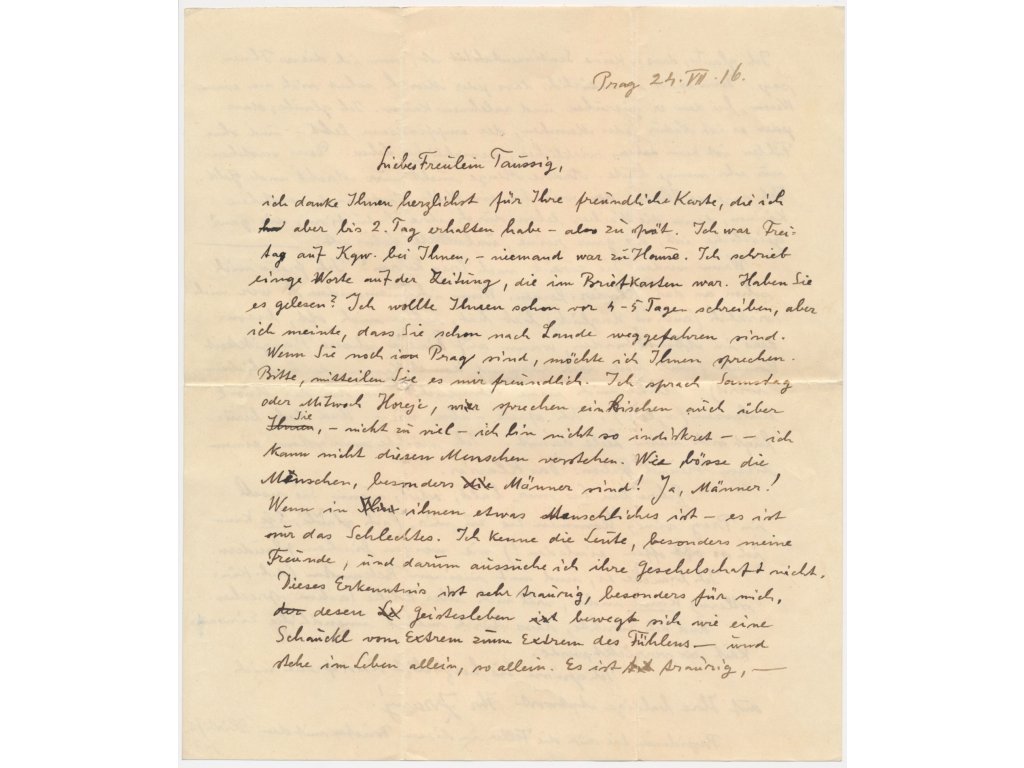 Prag 24. VII. 16.
Liebes Freulein Taussig,
ich danke Ihnen herzlichst für Ihre freundliche Karte, die ich
aber bis 2. Tag erhalten habe – also zu spät. Ich war Frei=
tag auf Kgw. bei Ihnen, – niemand war zu Hause. Ich schrieb
einige Worte auf der Zeitung, die im Briefkasten war. Haben Sie
es gelesen? Ich wollte Ihnen schon vor 4–5 Tagen schreiben, aber
ich meinte, dass Sie schon nach Lande weggefahren sind.
Wenn Sie noch im Prag sind, möchte ich Ihnen sprechen.
Bitte, mitteilen Sie es mir freundlich. Ich sprach Samstag
oder Mitwoch Horejc, wier sprechen ein Bischen auch über
Ihnen Sie, – nicht zu viel – ich bin nicht so indiskret – – ich
kann nicht diesen Menschen verstehen. Wie bösse die
Menschen, besonders die Männer sind! Ja, Männer!
Wenn in ihnen etwas Menschliches ist – es ist
nur das Schlechtes. Ich kenne die Leute, besonders meine
Freunde, und darum aussuche ich ihre Geschelschaft nicht.
Dieses Erkenntnis ist sehr traurig, besonders für mich,
der desen Geistesleben ist bewegt sich wie eine
Schauckl vom Extrem zum Extrem des Fühlens – und
stehe im Leben allein, so allein. Es ist traurig, –